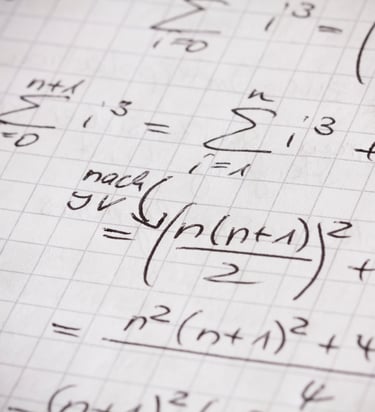 ∑_{i=0} i³ = (
∑_{=0}^{n+1} i³ = ∑_{i=1}^{n} i³ +
nach
= (n(n+1)/2)² +
= n²(n+1)² + 4 / 4
(n+1)² (